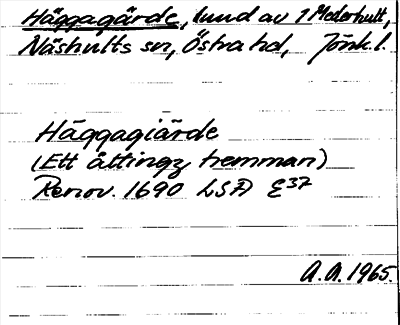 Häggagärde, lund av 1 Mederhult,
Näshults sn, Östra hd, Jönk.l.
Häggagiärde
(Ett åttingz hemman)
Renov. 1690 LSA E37
A.A. 1965.